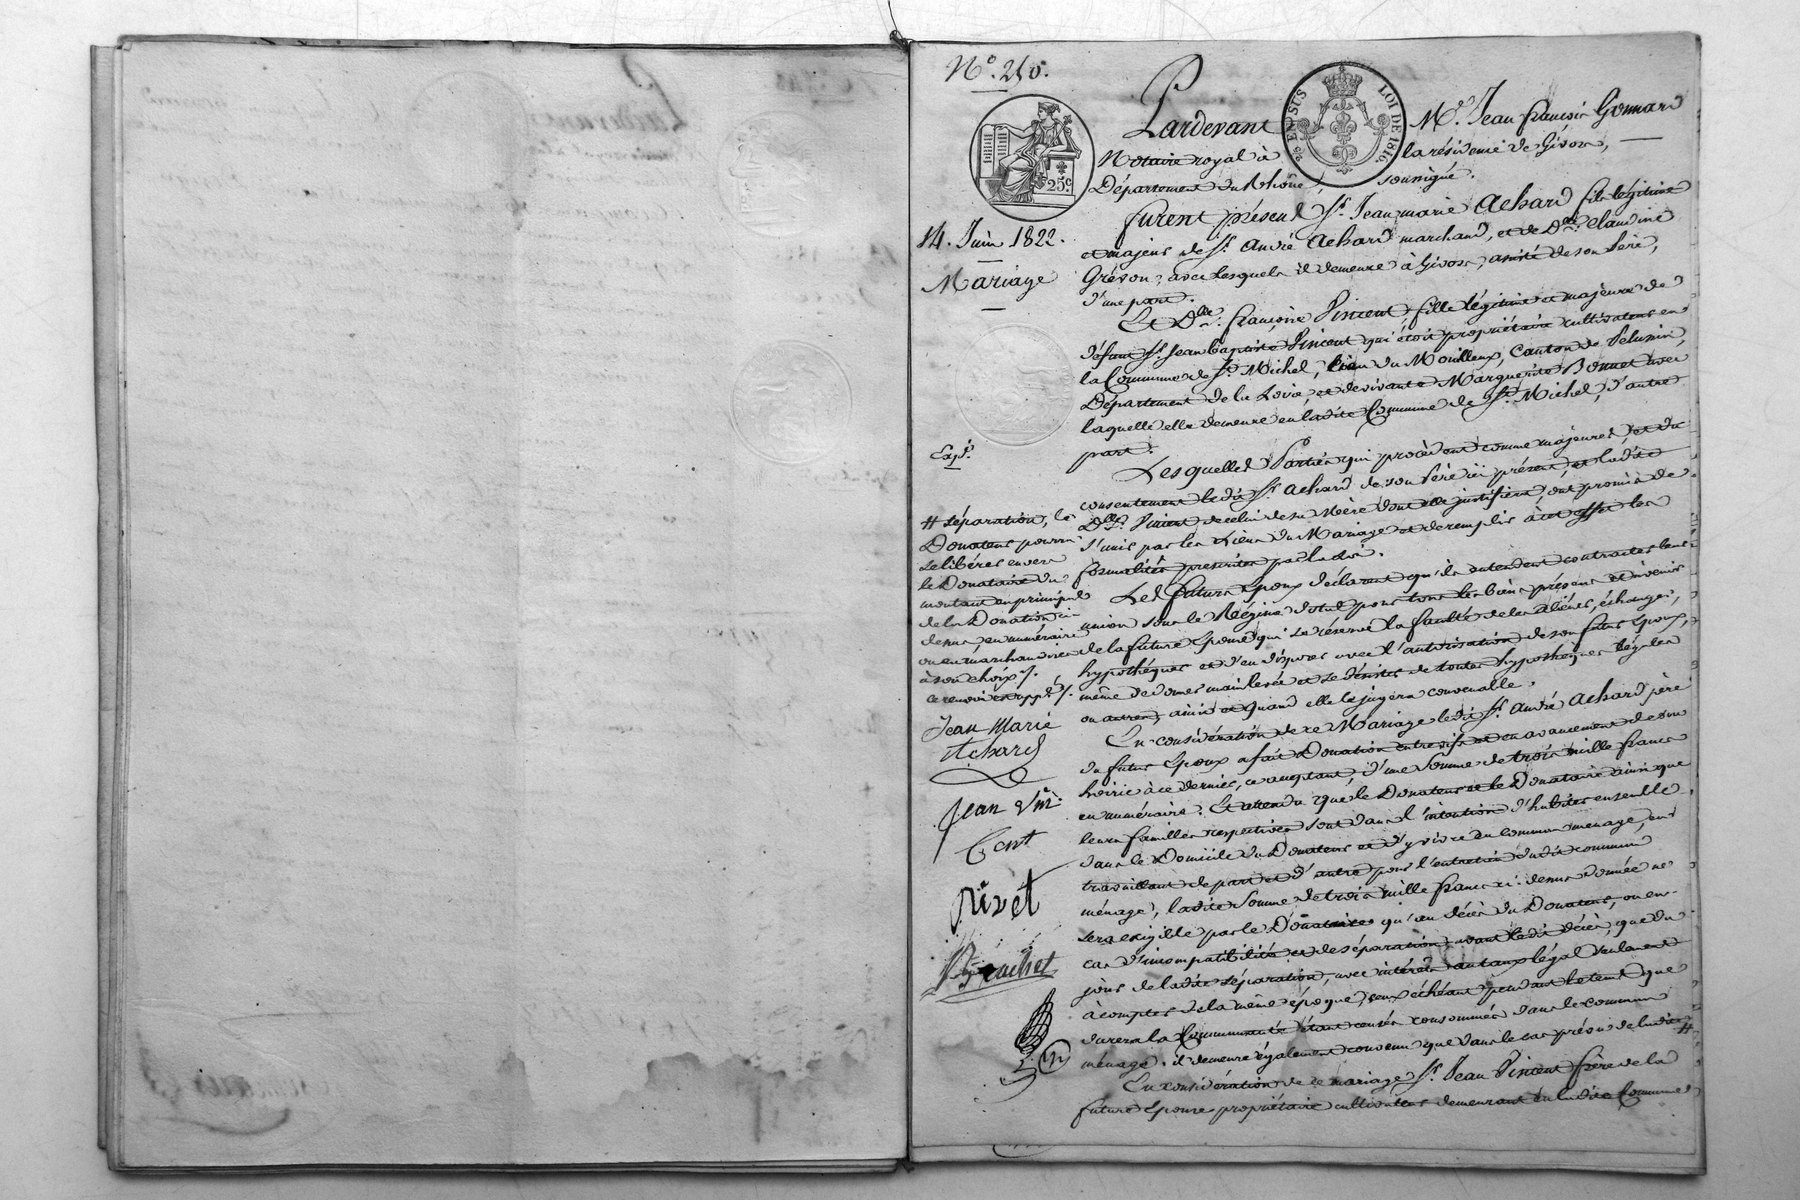 N.º 250.
25 c
25 EN SUS LOI DE 1816.
Pardevant M.e Jean françois Gonnard
Notaire royal à la résidence de Givors,
Département du Rhône, soussigné.
14. Juin 1822.
Mariage
furent présens S.r Jean marie Achard fils légitime
et majeur de S.r André Achard marchand, et de D.e Claudine
Grévon, avec lesquels il demeure à Givors, assisté de son Père,
d'une part.
Et D.lle françoise Vincent, fille légitime et majeure de
défunt S.r Jean baptiste Vincent qui étoit propriétaire cultivateur en
la Commune de S.t Michel, lieu du Mouilleux, Canton de Pelussin,
Département de la Loire, et de vivante Marguerite Bonnet avec
laquelle elle demeure en ladite Commune de S.t Michel, d'autre
part.
Exp.é
Lesquelles Parties qui procèdent comme majeures, et du
consentement ledit S.r Achard de son Père ici présent, et ladite
D.lle Vincent de celui de sa Mère dont elle justifiera, ont promis de
s'unir par les Liens du Mariage et de remplir à cet effet les
formalités prescrites par la Loi.
Les futurs Epoux déclarent qu'ils entendent contracter leur
union sous le Régime dotal pour tous les biens présens et à venir
de la future Epouse qui se réserve la faculté de les aliéner, échanger,
hypothéquer et d'en disposer avec l'autorisation de son futur Epoux,
même de donner mainlevée et se désister de toutes hypothèques légales
ou autres, ainsi et quand elle le jugera convenable.
En considération de ce Mariage ledit S.r André Achard père
du futur Epoux a fait Donation entre vifs et en avancement de son
hoirie à ce dernier, ce acceptant, d'une Somme de trois mille francs
en numéraire. Et attendu que le Donateur et le Donataire ainsi que
leurs familles respectives sont dans l'intention d'habiter ensemble
dans le Domicile du Donateur et d'y vivre en commun ménage, en
travaillant de part et d'autre pour l'entretien dudit commun
ménage, ladite Somme de trois mille francs ci-dessus donnée ne
sera exigible par le Donataire qu'au décès du Donateur, ou en
cas d'incompatibilité et de séparation avant ledit décès, que du
jour de ladite séparation, avec intérêts au taux légal seulement
à compter de la même époque, ceux échéant pendant le tems que
durera la Communauté étant censés consommés dans le commun
ménage. il demeure également convenu que dans le cas prévu de ladite #
En considération de ce mariage S.r Jean Vincent frère de la
future Epouse propriétaire cultivateur demeurant en ladite Commune
# séparation, le
Donateur pourra
se libérer envers
le Donataire du
montant en principal
de la Donation ci-
dessus, en numéraire
ou en marchandises
à son choix /.
ce renvoi est app.é /.
Jean Marie
Achard
Jean Vin
Cent
Rivet
Brachet